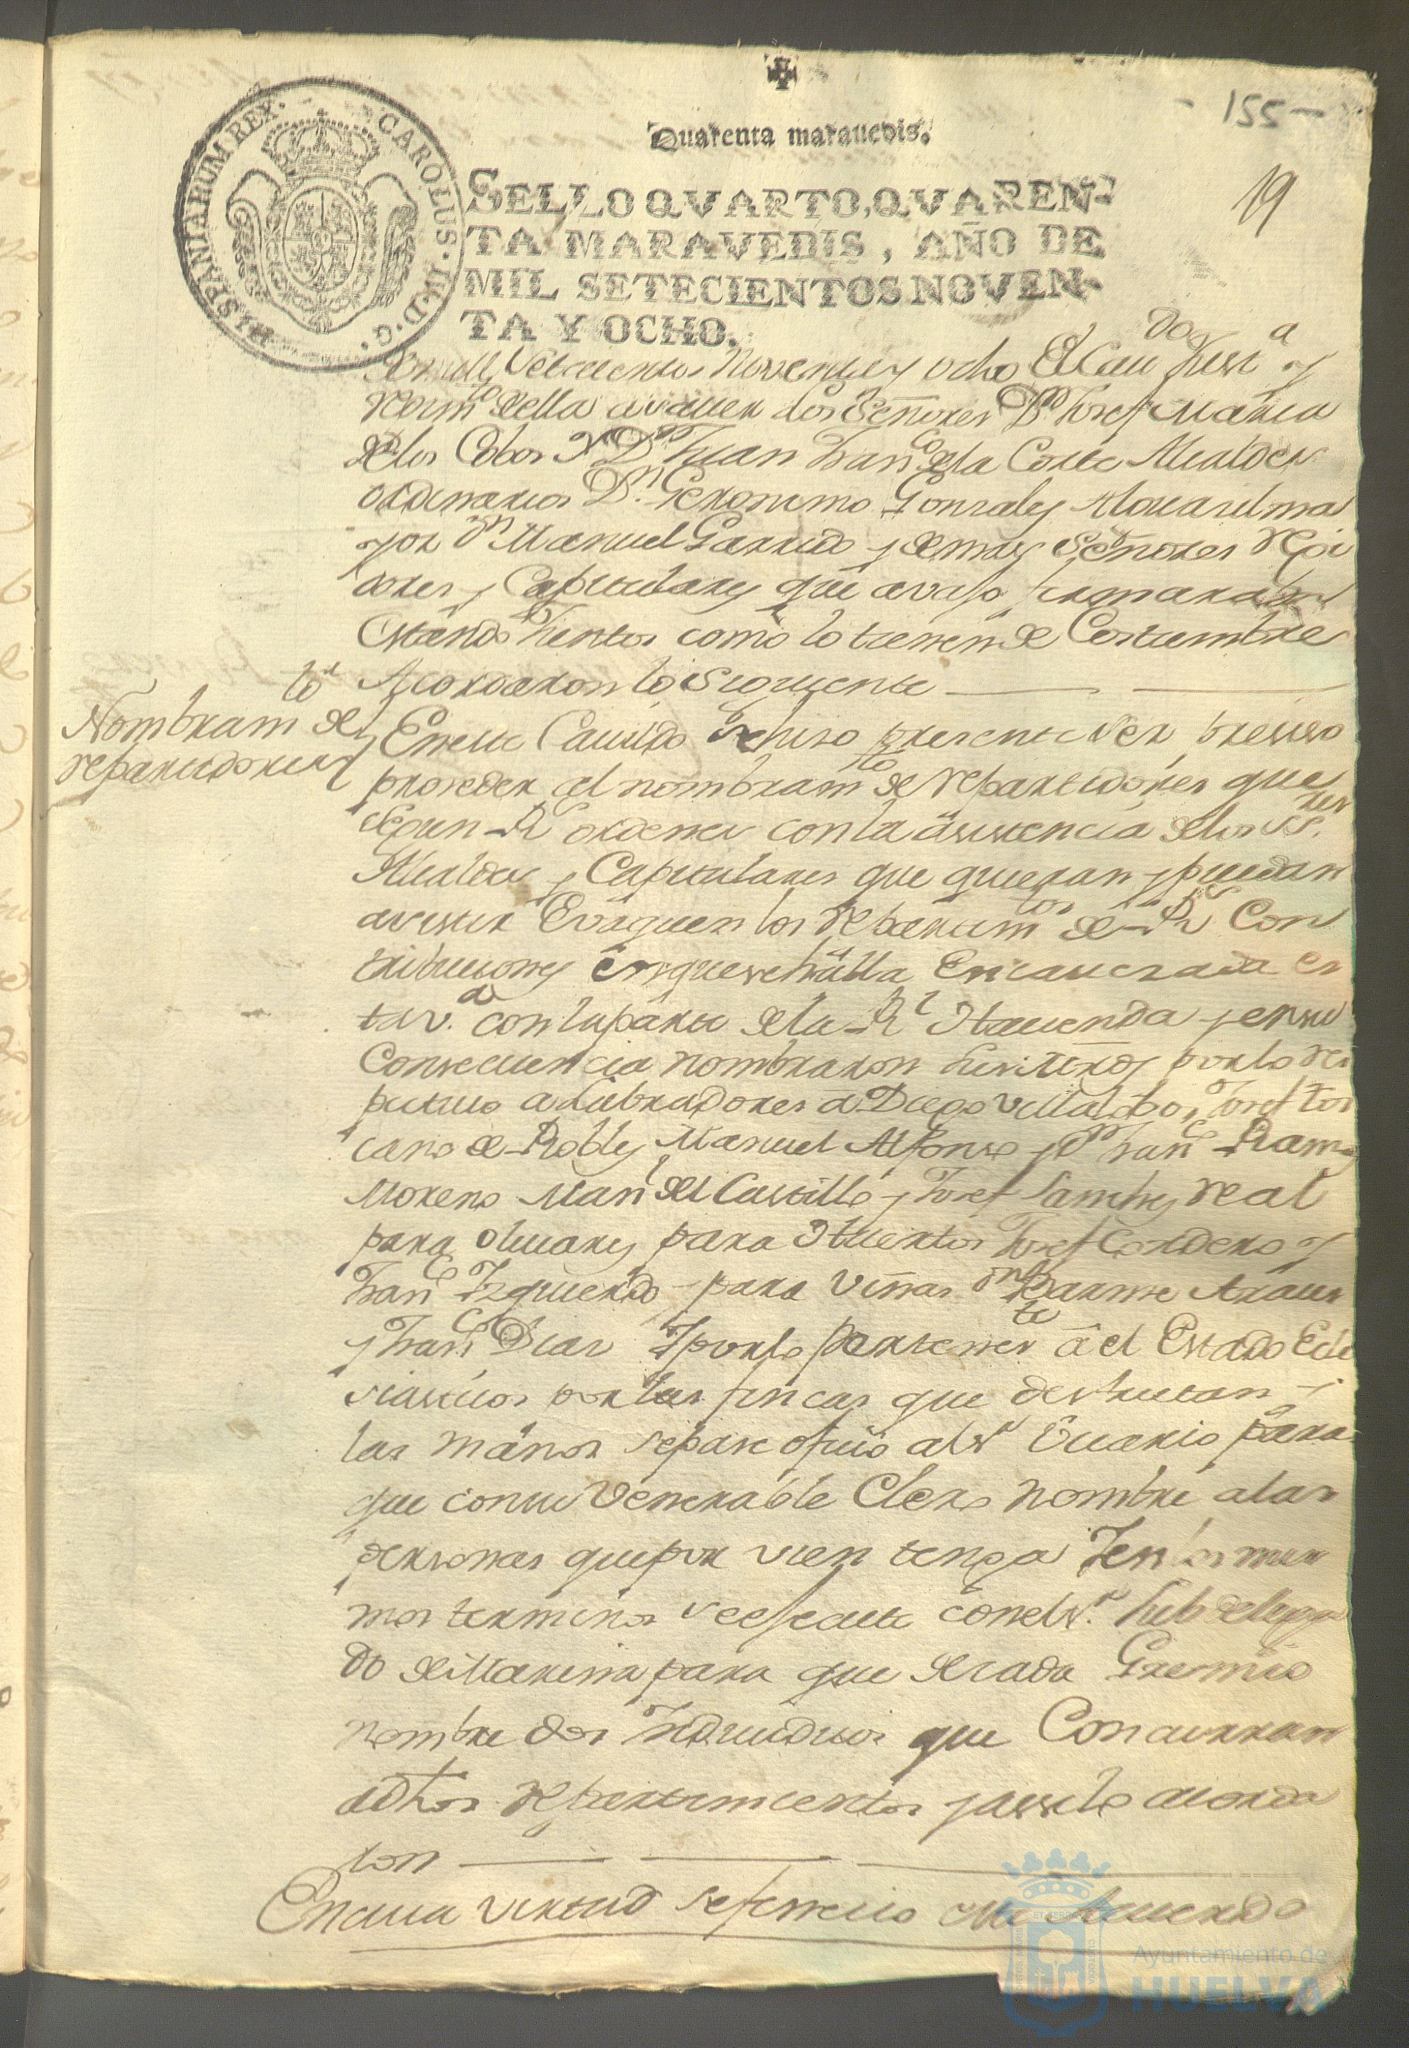 155
19
Quarenta maravedis.
HISPANIARUM REX. CAROLUS. IV. D. G.
SELLO QVARTO, QVAREN-
TA MARAVEDIS, AÑO DE
MIL SETECIENTOS NOVEN-
TA Y OCHO.
mill Setecientos Noventa y ocho El Cauᵈᵒ Justᵃ y
Regimᵗᵒ della a saver los Señores Dⁿ Josef Maria
delos Cobos Y Dⁿ Juan Franᶜᵒ dela Corte Alcaldes
ordinarios Dⁿ Geronimo Gonzales Alguasil ma
yor Dⁿ Manuel Garrido y demas Señores Regi
dores y Capitulares que avaso firmaran
Estando Juntos como lo tienen de Costumbre
Acordaron lo Siguiente
Nombramᵗᵒ de
repartidores
En este Cauildo se hiso presente ser presiso
proseder al nombramᵗᵒ de repartidores que
segun Rˢ ordenes con la asistencia delos SSʳᵉˢ
Alcaldes y Capitulares que quieran y puedan
asistir Evaquen los repartimᵗᵒˢ de Rˢ Con
tribusiones en que se halla Encauezada es
ta vᵃ con la parte dela Rˡ Hacienda y en su
Consecuencia nombraron sus mrds por lo res
pectivo a Labradores a Diego Villalobos, Josef Tos
cano de Robles Manuel Alfonso y Dⁿ Franᶜᵒ Ramos
Moreno Manˡ del Castillo y Josef Sanches real
para oliuares para Huertos Josef Cordero y
Franᶜᵒ Izquierdo para viñas Dⁿ Jayme Arauz
y Franᶜᵒ Dias Y por lo pertenesᵗᵉ a el Estado Ecle
siasticos por las fincas que desfrutan
las manos se pase oficio al Sʳ Vicario para
que con su Venerable Clero nombre a las
personas que por vien tenga Y en los mis
mos terminos se efectue con el Sʳ Subdelega
do de Marina para que de cada Gremio
nombre dos Indiuiduos que Concurran
a dhos repartimientos y assi lo acorda
ron
En cuia virtud se fenecio este Acuerdo
Ayuntamiento de
HUELVA